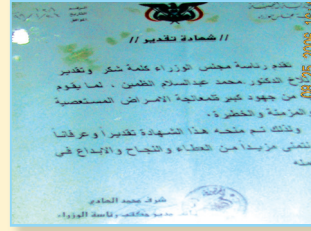 // شهادة تقدير //
تقدم رئاسة مجلس الوزراء كلمة شكر وتقدير
الدكتور محمد عبدالسلام الظمين . لما يقوم
من جهود كبر لمعالجة الامراض المستعصية
والمزمنة والخطيرة .
ولذلك تم منحه هذا الشهادة تقديراً وعرفاناً
نتمنى مزيداً من العطاء والنجاح والابداع في
شرف محمد الهادي
مدير مكتب رئاسة الوزراء